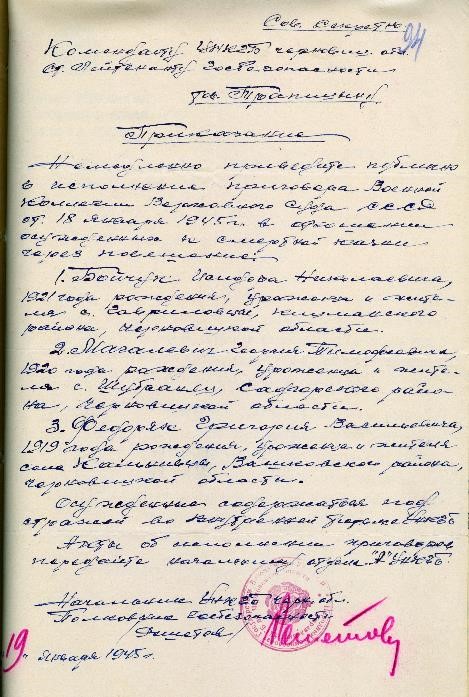 Сов. секретно
94
Коменданту УНКГБ Черновиц. обл.
Ст. Лейтенанту Госбезопасности
тов. Трапицыну
Приказание
Немедленно приведите публично
в исполнение приговора Военной
Коллегии Верховного Суда СССР
от 18 января 1945 г. в отношении
осужденных к смертной казни
через повешение:
1. Бойчук Исидора Николаевича,
1921 года рождения, уроженца и жите-
ля с. Гавриловцы, Кицманского
района, Черновицкой области.
2. Магалевич Георгия Тимофеевича,
1920 года рождения, уроженца и жите-
ля с. Шубранец, Садгорского райо-
на, Черновицкой области.
3. Федорюк Григория Васильевича,
1919 года рождения, уроженца и жителя
села Калинивцы, Вашковского района,
Черновицкой области.
Осужденные содержатся под
стражей во внутренней тюрьме УНКГБ
Акты об исполнении приговоров
передайте начальнику отдела "А" УНКГБ.
Начальник УНКГБ Черн. обл.
Полковник Госбезопасности
19 января 1945 г.